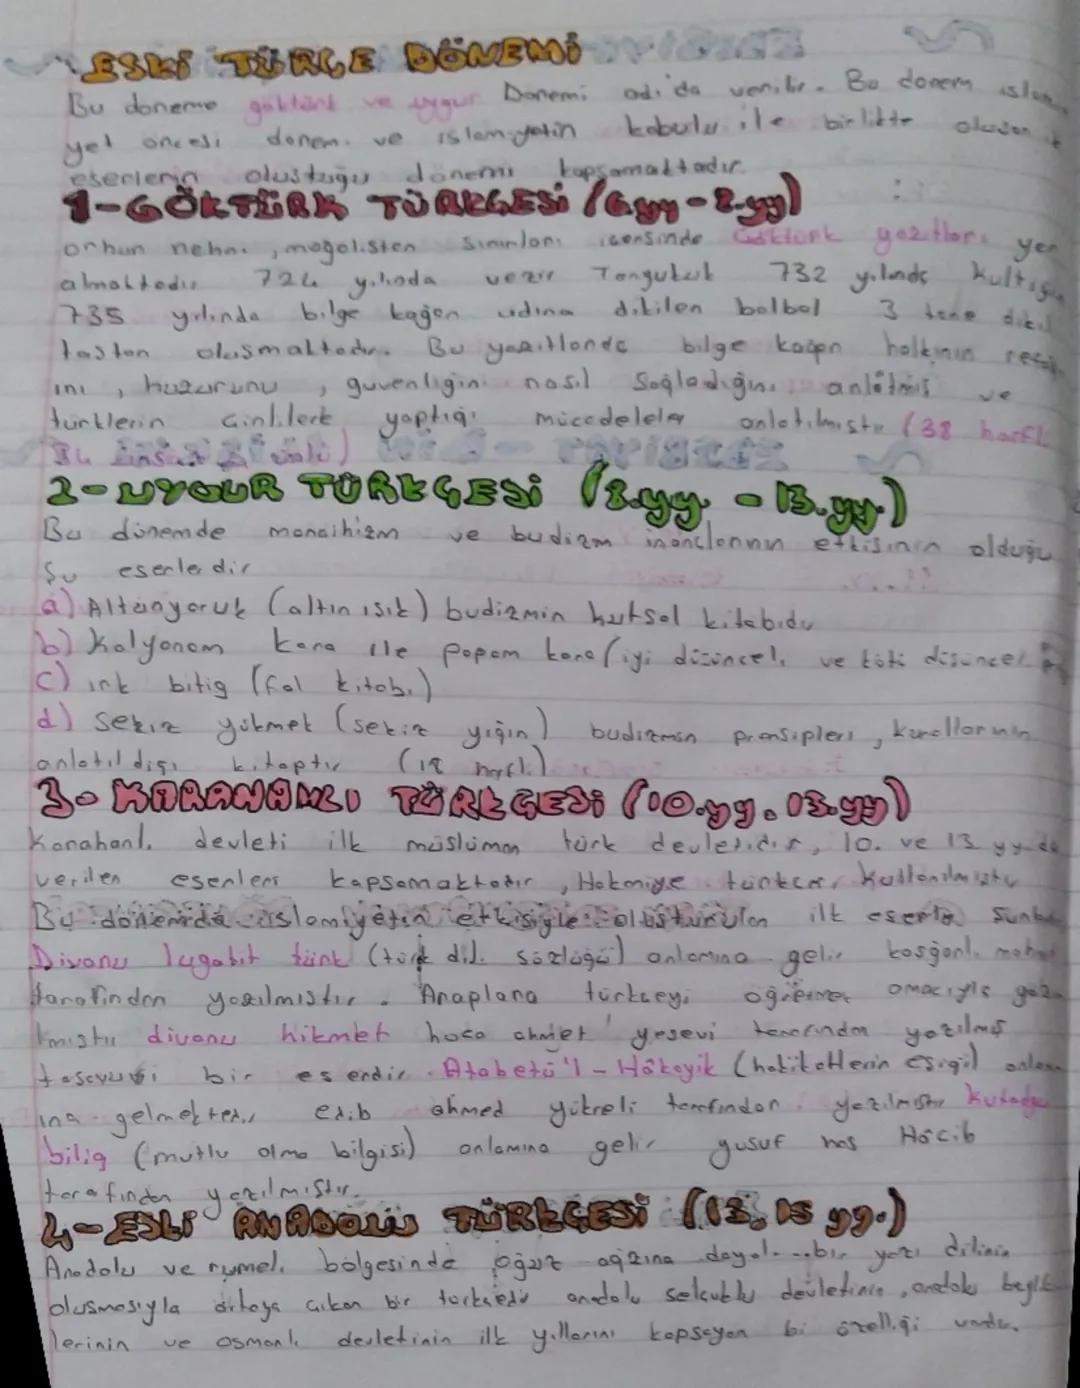 ESKİ TÜRÇE DÖNEMİ
Bu doneme göktürk ve uygur Donemi adı da verilir. Bu donem islam
yet oncesi donemi ve islamiyetin kabulu ile birlikte olusan
eserlerin olustugu dönemi kapsamaktadır.
1-GÖKTÜRK TÜRKÇESİ (6.yy-8.yy)
orhun nehri, mogolistan sınırları icersinde Göktürk yazıtları yer
almaktadır 724 yılında vezir Tonyukuk 732 yılında Kultigin
735 yılında bilge kagan adına dikilen balbal 3 tane dikil
tastan olusmaktadır. Bu yazıtlarda bilge kagan halkının
ını, huzurunu, guvenligini nasıl sagladıgını anlatmıs ve
türklerin Cinlilerle yaptıgı mücedeleler anlatılmıstır (38 harfli
34 ünsüz ünlü)
2-UYGUR TÜRKÇESİ (8.yy. - 13.yy.)
Bu dönemde manaihizm ve budizm inanclarının etkisinin olduğu
Şu eserlerdir
a) Altunyaruk (altın ısık) budizmin kutsal kitabıdır
b) Kalyanam kara ile papam kara (iyi düsünceli ve kötü düsünceli
c) ırk bitig (fal kitabı)
d) Sekiz yükmek (sekiz yığın) budizmin prensipleri, kurallarının
anlatıldıgı kitaptır (18 harfli)
3- KARAHANLI TÜRKÇESİ (10.yy. 13.yy)
Karahanlı devleti ilk müslüman türk devletidir, 10. ve 13 yy da
verilen eserleri kapsamaktadır, Hakaniye türkcesi kullanılmıstır
Bu dönemde islamiyetin etkisiyle olusturulan ilk eserler sunlar
Divanu lugabit türk (türk dili sözlügü) anlamına gelir kasgarlı mahmut
tarafından yazılmıstır. Araplara türkceyi ögretmek amacıyla yazıl
mıstır divanu hikmet hoca ahmet yesevi tarafından yazılmıs
tasavvufi bir eserdir. Atabetü'l-Hâkayik (hakikatlerin esigi) anlam
ına gelmektedir edib ahmed yükneli tarafından yazılmıstır Kutadgu
bilig (mutlu olma bilgisi) anlamına gelir yusuf has Hâcib
tarafından yazılmıstır.
4-ESKİ ANADOLU TÜRKÇESİ (13. 15 yy.)
Anadolu ve rumeli bölgesinde oğuz agzına dayalı bir yazı dilinin
olusmasıyla ortaya cıkan bir türkcedir anadolu selcuklu devletinin, anadolu beylik
lerinin ve osmanlı devletinin ilk yıllarını kapsayan bi özelligi vardır.